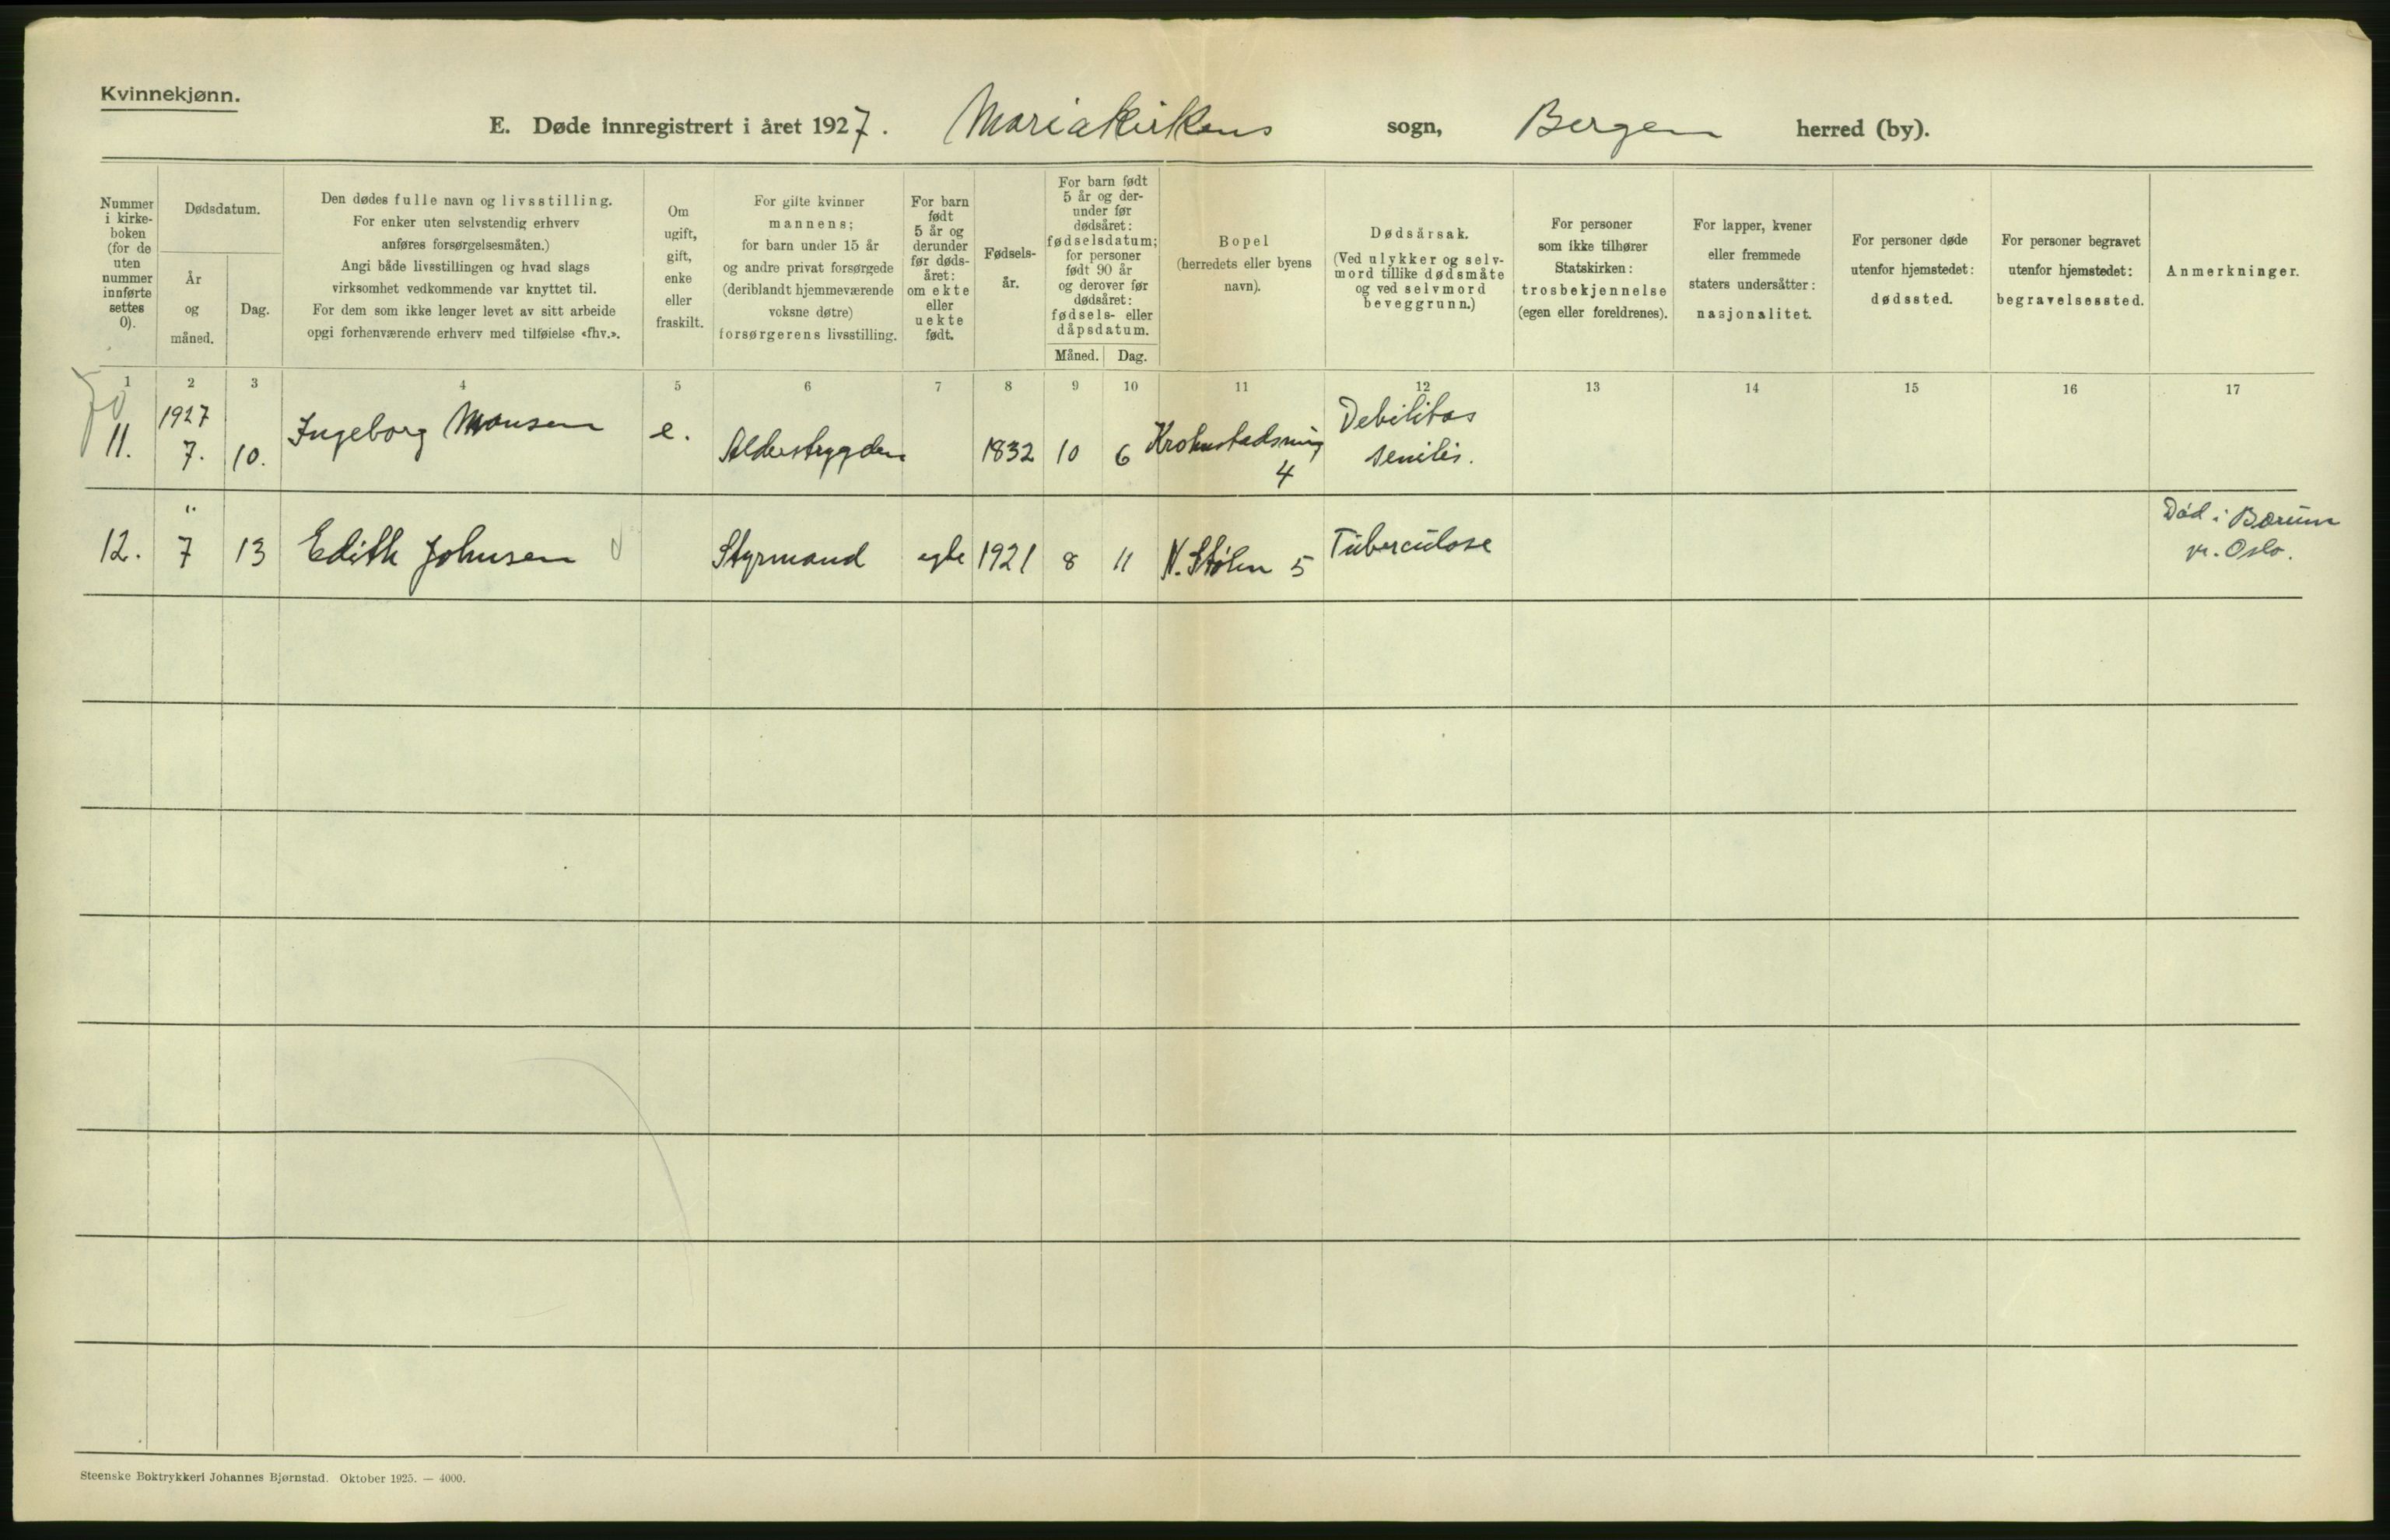 Kvinnekjønn.
E. Døde innregistrert i året 1927. Mariakirkens sogn, Bergen herred (by).
Nummer
i kirke-
boken
(for de
uten
nummer
innførte
settes
0).
Dødsdatum.
År
og
måned.
Dag.
Den dødes fulle navn og livsstilling.
For enker uten selvstendig erhverv
anføres forsørgelsesmåten.)
Angi både livsstillingen og hvad slags
virksomhet vedkommende var knyttet til.
For dem som ikke lenger levet av sitt arbeide
opgi forhenværende erhverv med tilføielse «fhv.».
Om
ugift,
gift,
enke
eller
fraskilt.
For gifte kvinner
mannens;
for barn under 15 år
og andre privat forsørgede
(deriblandt hjemmeværende
voksne døtre)
forsørgerens livsstilling.
For barn
født
5 år og
derunder
før døds-
året:
om ekte
eller
uekte
født.
Fødsels-
år.
For barn født
5 år og der-
under før
dødsåret:
fødselsdatum;
for personer
født 90 år
og derover før
dødsåret:
fødsels- eller
dåpsdatum.
Måned. Dag.
Bopel
(herredets eller byens
navn).
Dødsårsak.
(Ved ulykker og selv-
mord tillike dødsmåte
og ved selvmord
beveggrunn.)
For personer
som ikke tilhører
Statskirken:
trosbekjennelse
(egen eller foreldrenes).
For lapper, kvener
eller fremmede
staters undersåtter:
nasjonalitet.
For personer døde
utenfor hjemstedet:
dødssted.
For personer begravet
utenfor hjemstedet:
begravelsessted.
Anmerkninger.
1 2 3 4 5 6 7 8 9 10 11 12 13 14 15 16 17
1927
11. 7. 10. Ingeborg Monsen e. Alderstrygden 1832 10 6 Krohnstadsmug
4
Debilitas
senilis.
"
12. 7 13 Edith Johnsen Styrmand egte 1921 8 11 N. Stølen 5 Tuberculose
Død i Bærum
nr. Oslo.
Steenske Boktrykkeri Johannes Bjørnstad. Oktober 1925. — 4000.